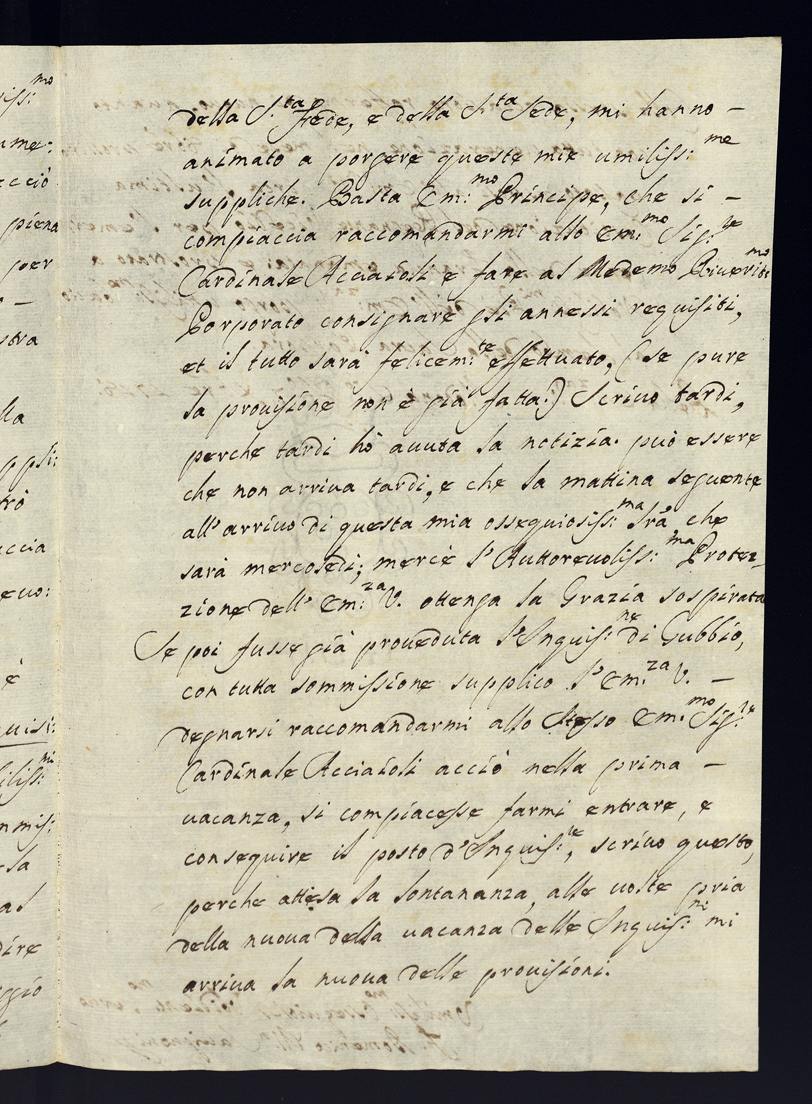 della S.ta fede, e della S.ta Sede, mi hanno –
animato a porgere queste mie umiliss:me
suppliche. Basta Em:mo Principe, che si –
compiaccia raccomandarmi allo Em:mo Sig.re
Cardinale Acciaioli e fare al Medemo Riverit:mo
Porporato consignare gli annessi requisiti,
et il tutto sarà felicem:te effettuato, (se pure
la provisione non è già fatta.) Scrivo tardi,
perche tardi hò avuta la notizia. può essere
che non arriva tardi, e che la mattina seguente
all'arrivo di questa mia ossequiosiss:ma Lrã, che
sarà mercoledì; mercè l'Auttorevoliss:ma Protez-
zione dell'Em:za V. ottenga la Grazia sospirata
Se poi fusse già proveduta l'Inquis:ne di Gubbio,
con tutta sommissione supplico l'Em:za V. –
degnarsi raccomandarmi allo stesso Em:mo Sig.re
Cardinale Acciaioli acciò nella prima –
vacanza, si compiacesse farmi entrare, e
conseguire il posto d'Inquis:re, scrivo questo,
perche attesa la lontananza, alle volte pria
della nuova della vacanza delle Inquis:ni mi
arriva la nuova delle provisioni.
mo
iss:
ume:
ecciò
piena
per
–
stra
lla
ppli:
trò
accia
evo:
è
quisi:
iliss:mi
mmis:
la
al
dire
ggiò